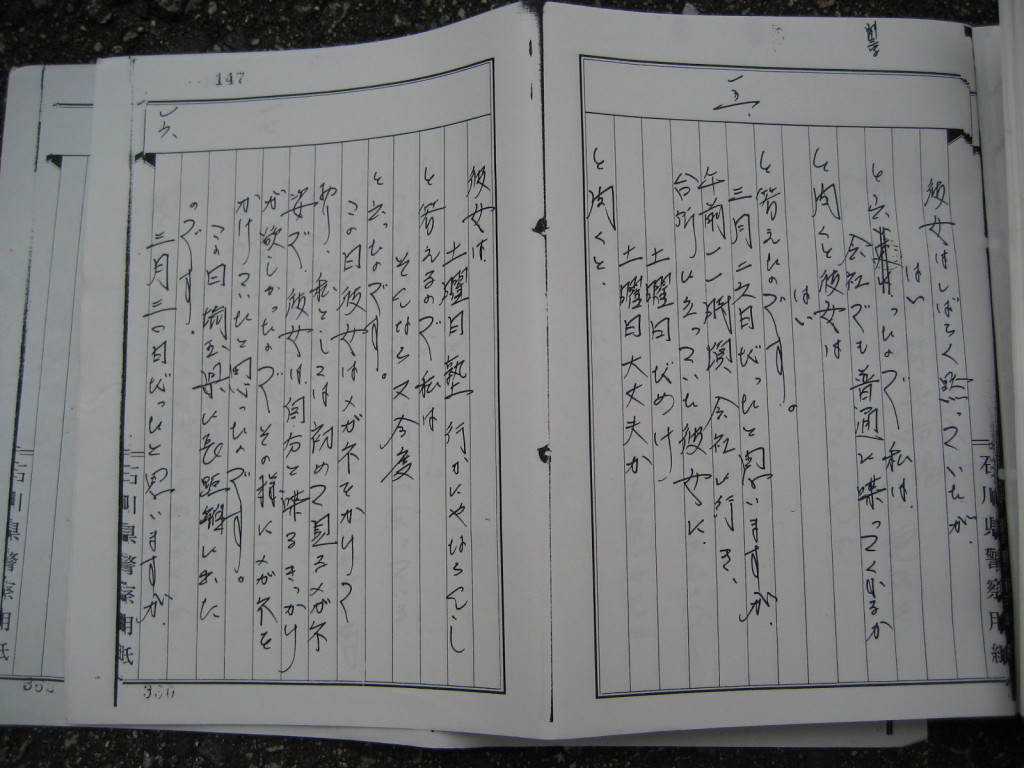 彼女はしばらく黙っていたが、
はい
と云ったので 私は、
会社でも普通に喋ってくれるか
と聞くと彼女は
はい
と答えたのです。
三月二九日だったと思いますが、
午前一一時頃 会社に行き、
台所に立っていた彼女に、
土曜日だめけ
土曜日大丈夫か
と聞くと、
石川県警察用紙
彼女は
土曜日塾行かにゃならんし
と答えるので私は
そんなら又今度
と云ったのです。
この日彼女はメガネをかけて
おり、私としては初めて見るメガネ
姿で、彼女は自分と喋るきっかけ
が欲しかったのでその様にメガネを
かけていたと思ったのです。
この日
のです。
三月三〇日だったと思いますが、
石川県警察用紙
147
330
石川県警察用紙